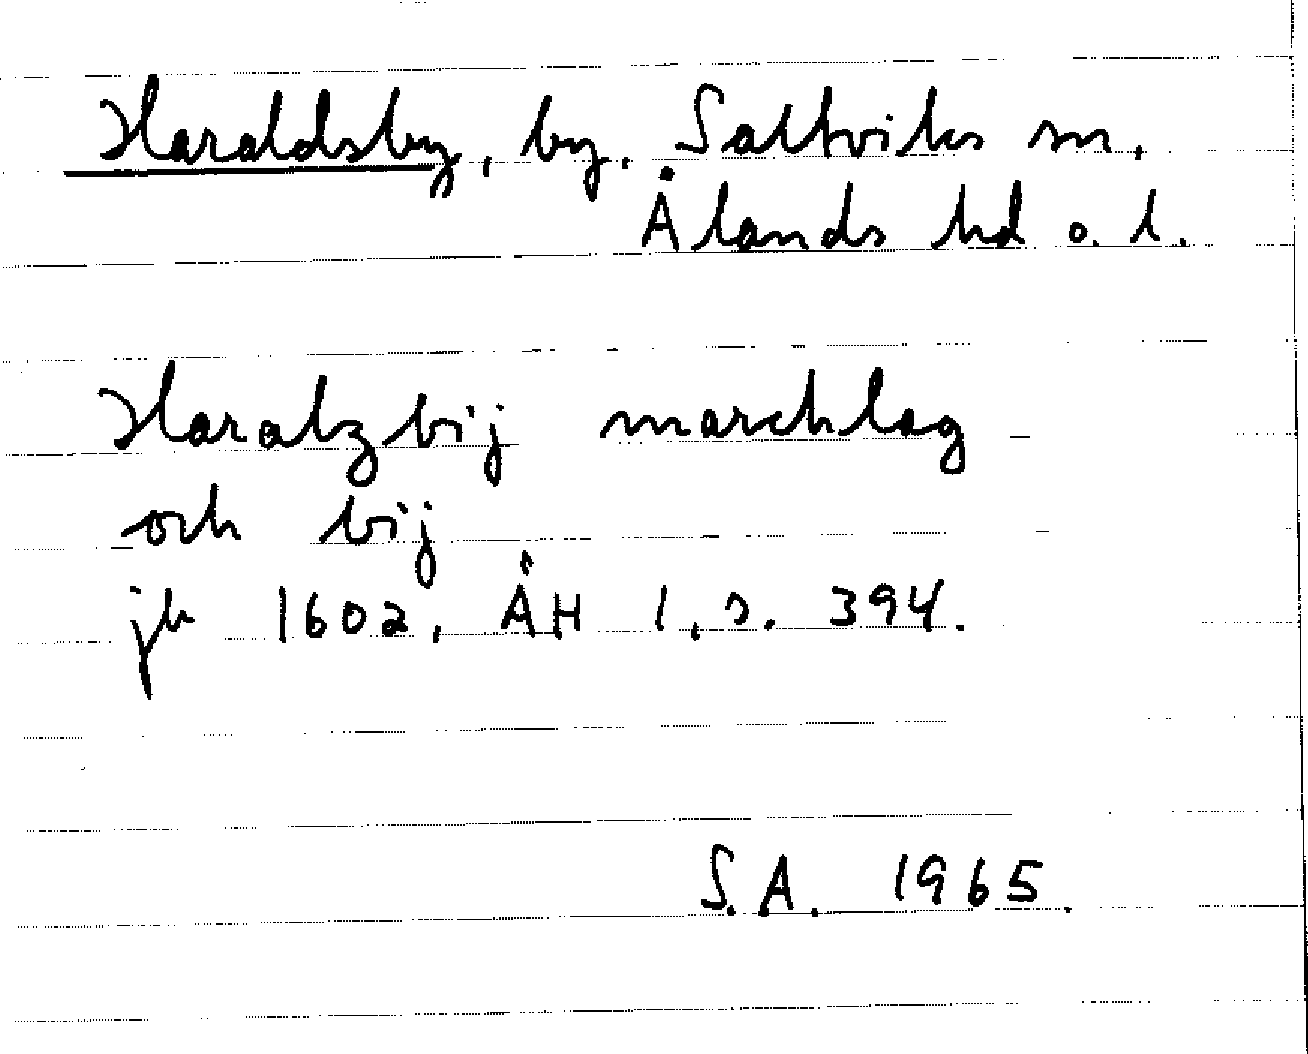 Haraldsby, by, Saltviks sn,
Ålands hd o. l.
Haralzbij marchlag
och bij
jb 1602, ÅH 1, s. 394.
S.A. 1965.